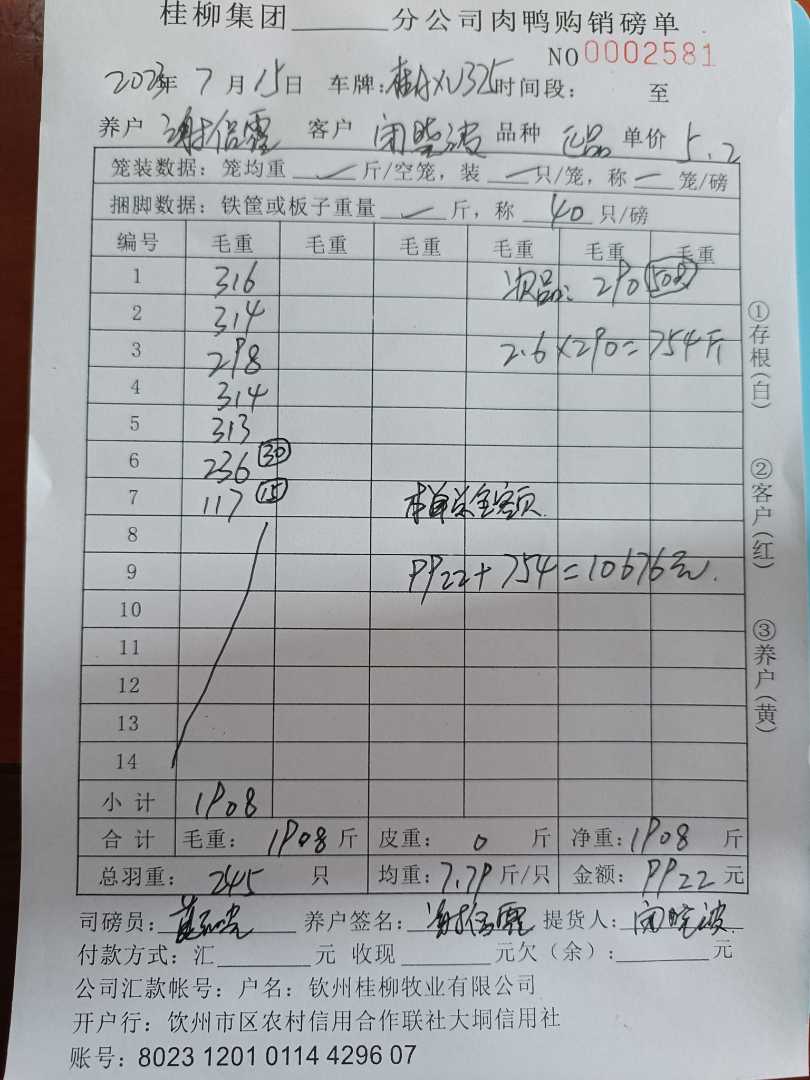 桂柳集团______分公司肉鸭购销磅单
NO 0002581
2023年 7月15日 车牌:桂AXU325 时间段: 至
养户 谢侣霞 客户 闭晓波 品种 正品 单价 5.2
笼装数据:笼均重 / 斤/空笼,装 / 只/笼,称 一 笼/磅
捆脚数据:铁筐或板子重量 / 斤,称 40 只/磅
编号 毛重 毛重 毛重 毛重 毛重 毛重
1 316 次品:290
2 314
3 298 2.6×290=754斤
4 314
5 313
6 236 ㉚
7 117 ⑮ 本单总金额
8
9 9922+754=10676元.
10
11
12
13
14
小计 1908
合计 毛重: 1908 斤 皮重: 0 斤 净重: 1908 斤
总羽重: 245 只 均重: 7.79 斤/只 金额: 9922 元
司磅员: 养户签名: 谢侣霞 提货人: 闭晓波
付款方式:汇______元 收现______元欠(余):______元
公司汇款帐号:户名:钦州桂柳牧业有限公司
开户行:钦州市区农村信用合作联社大垌信用社
账号:8023 1201 0114 4296 07
①存根(白)
②客户(红)
③养户(黄)